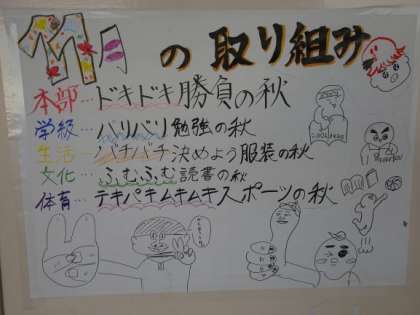 11月の取り組み
本部…ドキドキ勝負の秋
学級…バリバリ勉強の秋
生活…バチバチ決めよう服装の秋
文化…ふむふむ読書の秋
体育…テキパキムキムキスポーツの秋